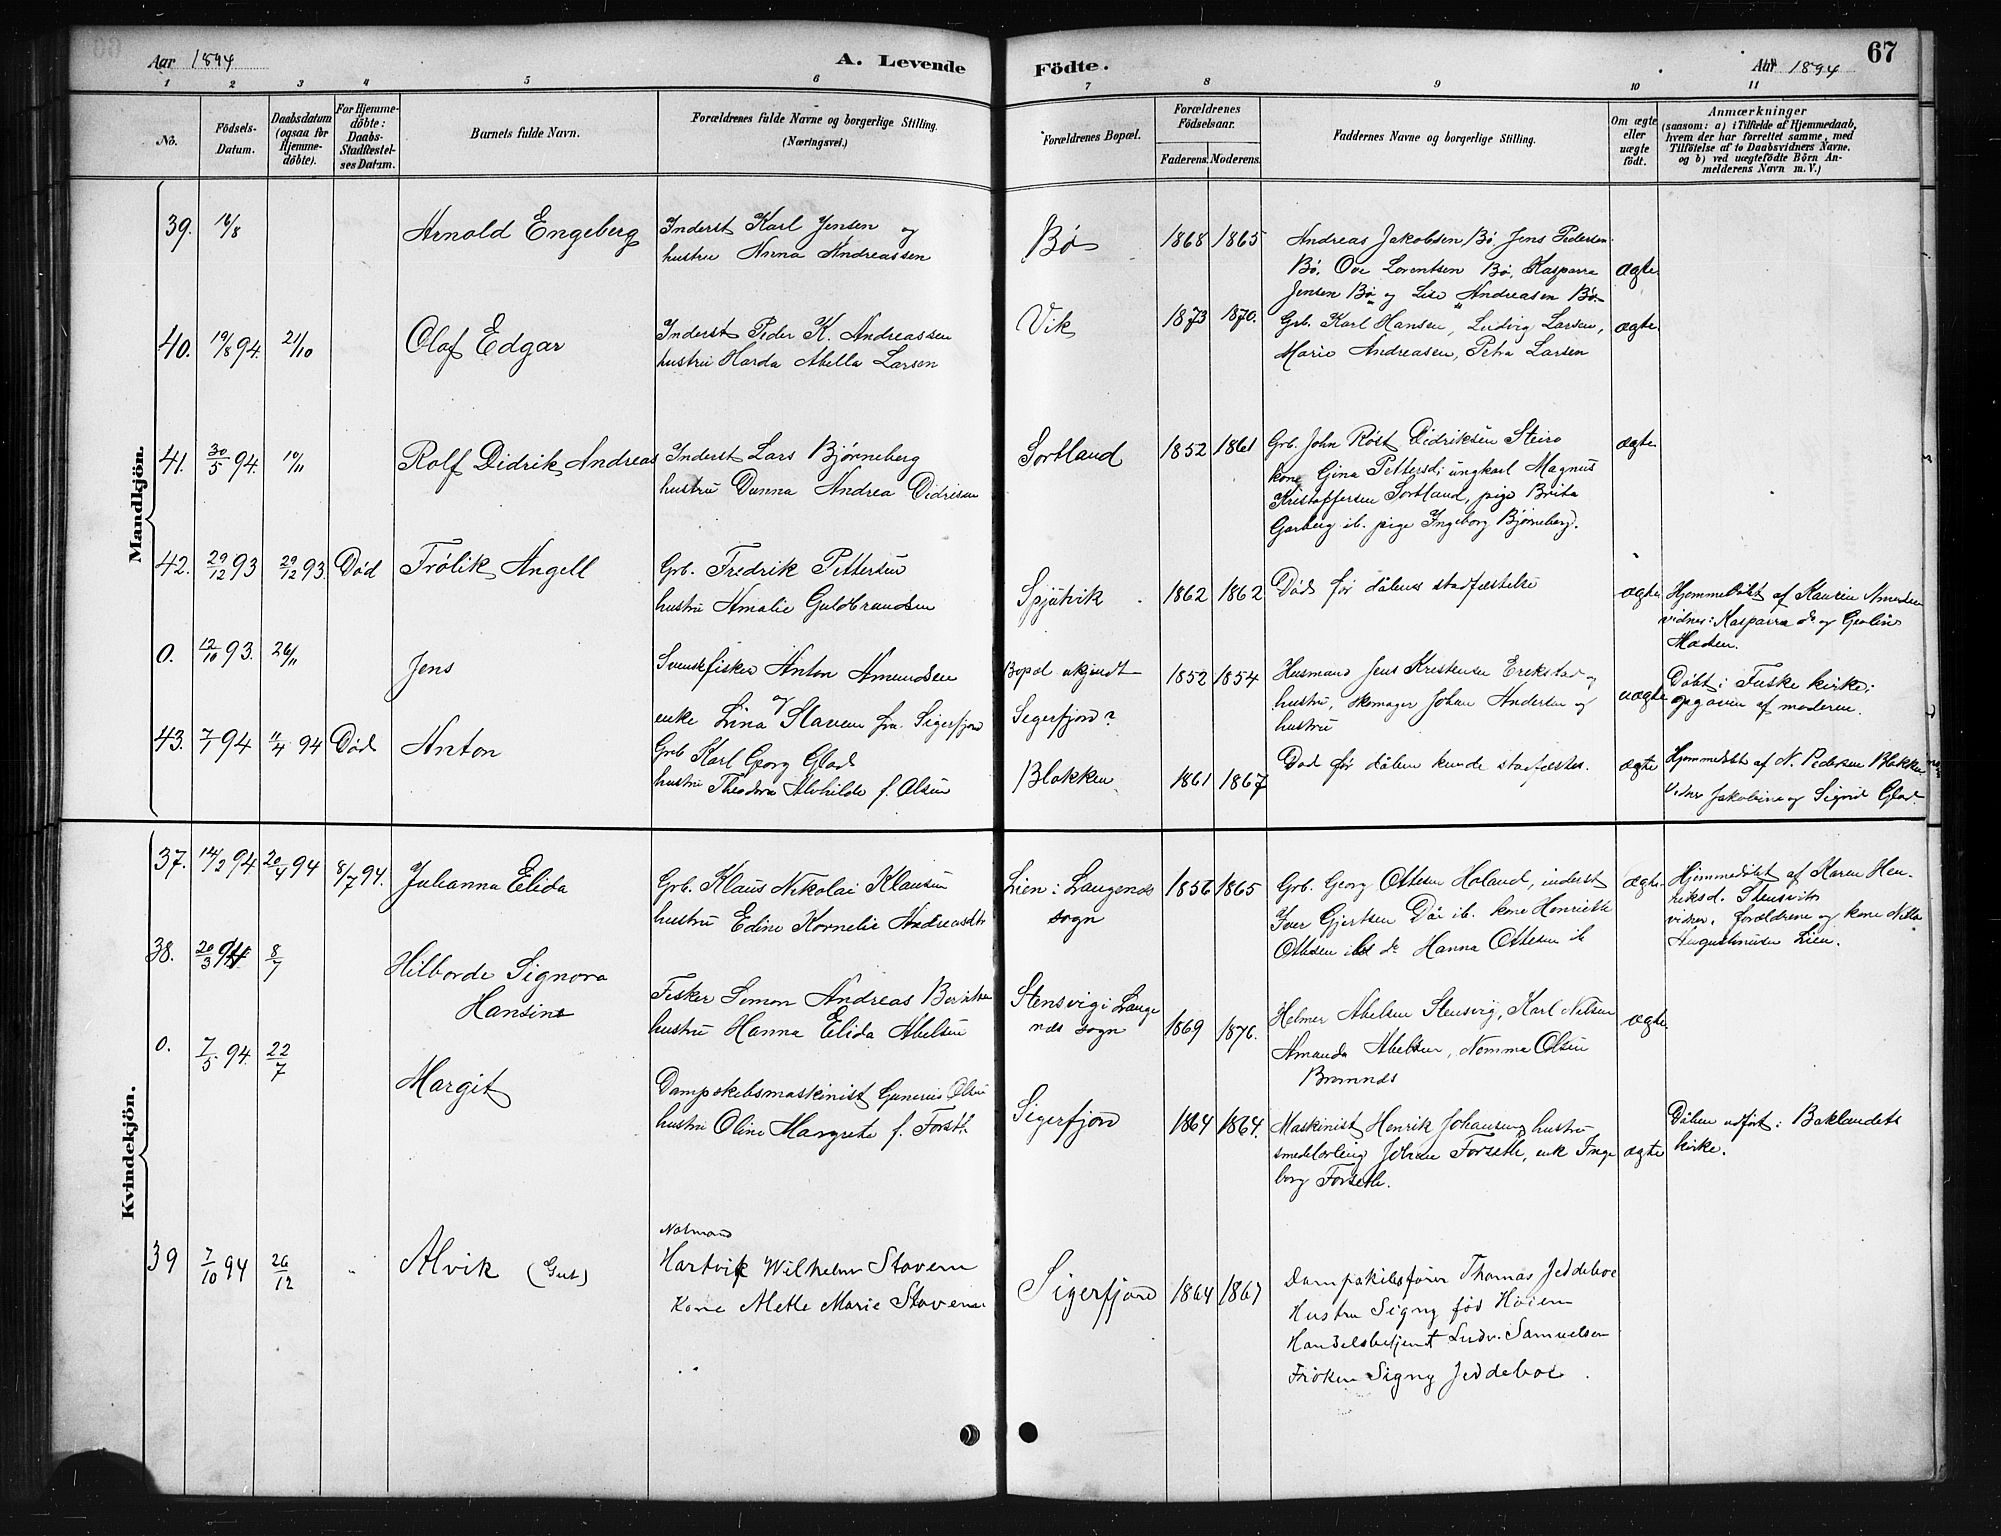 Aar 1894
A. Levende
Födte.
Aar 1894
67
1 2 3 4 5 6 7 8 9 10 11
No.
Födsels-
Datum.
Daabsdatum
(ogsaa for
Hjemme-
döbte).
For Hjemme-
döbte:
Daabs-
Stadfestel-
ses Datum.
Barnets fulde Navn.
Forældrenes fulde Navne og borgerlige Stilling.
(Næringsvei.)
Forældrenes Bopæl.
Forældrenes
Födselsaar.
Faderens. Moderens.
Faddernes Navne og borgerlige Stilling.
Om ægte
eller
uægte
födt.
Anmærkninger
(saasom: a) i Tilfælde af Hjemmedaab,
hvem der har forrettet samme, med
Tilföielse af to Daabsvidners Navne.
og b) ved uægtefödte Börn An-
melderens Navn m. V.)
Mandkjön.
39. 16/8 Arnold Engeberg
Inderst Karl Jensen og
hustru Anna Andreassen
Bø 1868 1865
Andreas Jakobsen Bø, Jens Pedersen
Bø, Ove Lorentsen Bø, Kasparra
Jensen Bø og Lise Andreasen Bø
ægte
40. 19/8 94. 21/10 Olaf Edgar
Inderst Peder K. Andreassen
hustru Harda Abella Larsen
Vik 1873 1870.
Grb. Karl Hansen, Ludvig Larsen,
Marie Andreasen, Petra Larsen
ægte
41. 30/5 94. 10/11 Rolf Didrik Andreas
Inderst Lars Bjørneberg
hustru Danna Andrea Didriksen
Sortland 1852 1861
Grb. John Røst Didriksen Steiro
kone Gina Pettersd, ungkarl Magnus
Kristoffersen Sortland, pige Brita
Garberg ib. pige Ingeborg Bjørneberg.
ægte
42. 29/12 93 29/12 93. Død Frølik Angell
Grb. Fredrik Pettersen
hustru Amalie Guldbrandsen
Spjutvik 1862 1862
Død før dåbens stadfæstelse
ægte
Hjemmedøbt af
vidner: Kasparra do og
Madsen.
0. 12/10 93. 26/11 Jens
Svenskfisker Anton Amundsen
og
enke Lina Slaven fra Sigerfjord
Bopæl ukjendt
Sigerfjord?
1852 1854
Husmand Jens Kristensen Erikstad og
hustru, skomager Johan Andersen og
hustru
uægte
Døbt i Fuske kirke;
opgaven af moderen.
43. 7/1 94 11/4 94 Død Anton
Grb Karl Georg Glad
hustru Theodora Alvhilde f. Olsen
Blokken 1861 1867
Død før dåben kunde stadfæstes.
ægte
Hjemmedøbt af N. Pedersen Blokken
Vidner Jakobine og Sigrid Glad.
Kvindekjön.
37. 14/2 94 20/4 94 8/7 94. Julianna Elida
Grb. Klaus Nikolai Klausen
hustru Edine Kornelie Andreasdtr
Lien i Langenes
sogn
1856 1865
Grb. Georg Ottesen Holand, inderst
Iver Gjertsen ib. kone Henriette
Ottesen Hanna Ottesen ib
ægte
Hjemmedøbt af Karen Hen-
riksd. Stensvik
vidner, forældrene og kone
Augustinusen Lien.
38. 20/3 94 8/7 Hilborde Signora
Hansine
Fisker Simon Andreas
hustru Hanna Elida Abelsen
Stensvig i Lange
nes sogn
1869 1876.
Helmer Abelsen Stensvig, Karl Nilsen
Amanda Abelsen, Nomma Olsen
Bremnes
ægte
0. 7/5 94. 22/7 Margit
Dampskibsmaskinist Gunerius Olsen
hustru Oline Margrete f. Forseth
Sigerfjord 1864 1864.
Maskinist Henrik Johansen, hustru
smedelærling Johan Forseth, enk Inge
borg Forseth.
ægte
Dåben udført i Baklandets
kirke.
39 7/10 94 26/12 " Alvik (Gut)
Notmand
Hartvik Wilhelm Stavem
Kone Alette Marie Stavem
Sigerfjord 1864 1867
Dampskibsfører Thomas Jeddeboe
Hustru Signy fød Høiem
Handelsbetjent Ludv. Samuelsen
Frøken Signy Jeddeboe.